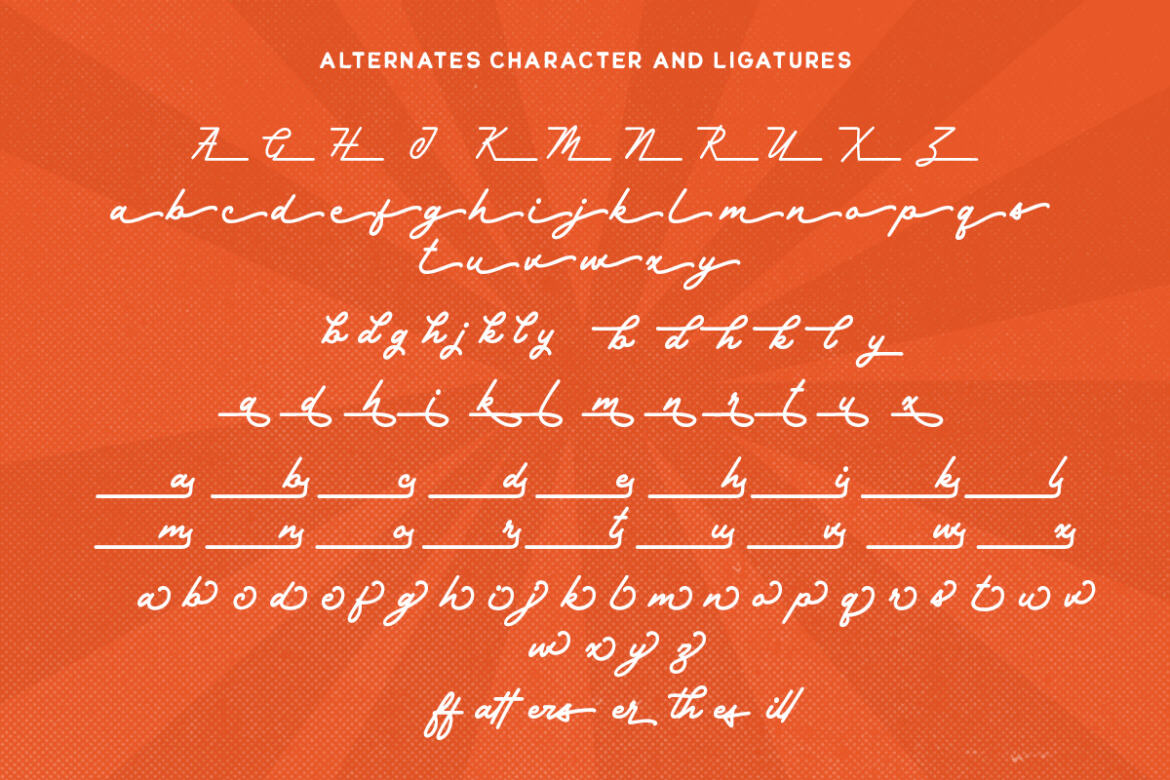 ALTERNATES CHARACTER AND LIGATURES
A G H J K M N R U X Z
a b c d e f g h i j k l m n o p q s
t u v w x y
b d g h j k l y b d h k l y
a d h i k l m n r t u x
a b c d e h i k l
m n o r t u v w x
a b c d e f g h i j k l m n o p q r s t u v
w x y z
ff att ers er th es ill